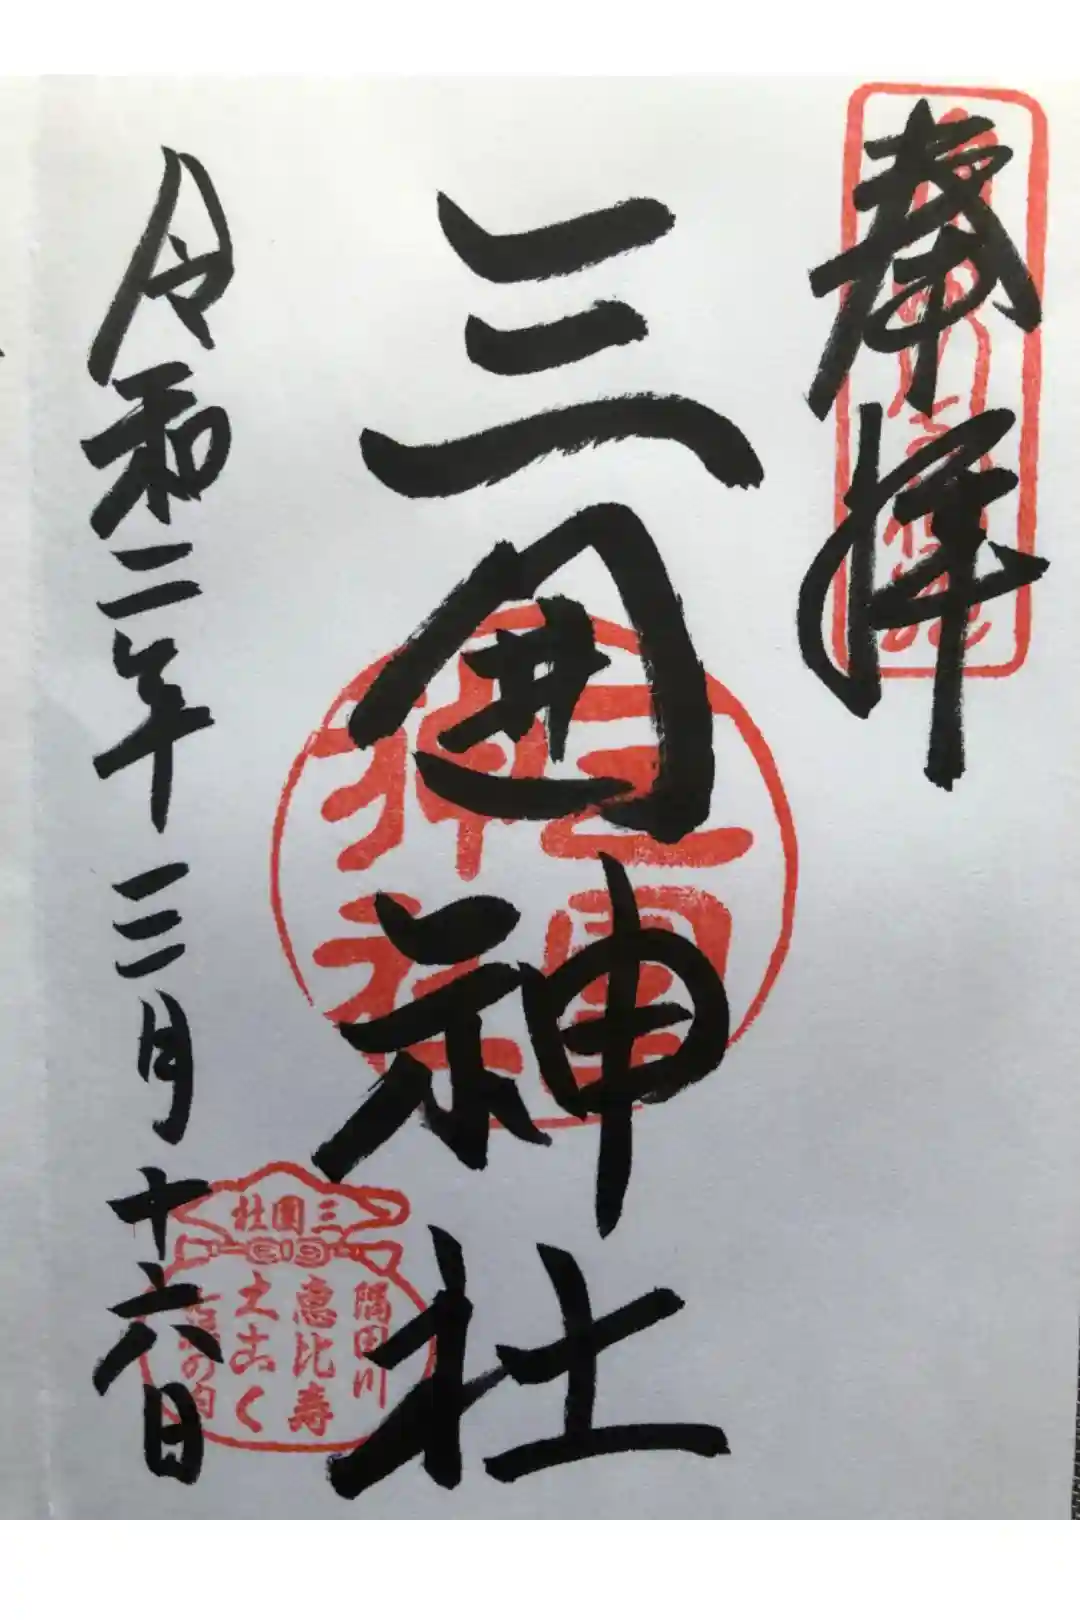 奉拝
三囲神社
令和二年三月十六日
三囲神社
三圍社
隅田川
恵比寿
大こく